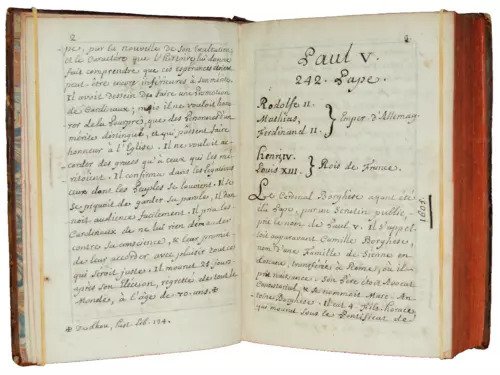 2
pe, par la nouvelle de son Exaltation,
et le Caractère que l'Eternel lui donne
fait comprendre que ces espérances
peut être encore inférieures à son mérite.
Il avoit dessein de faire une Promotion
de Cardinaux; mais il ne vouloit hono-
rer de la Pourpre, que des Personnes d'un
mérite distingué, et qui pussent faire
honneur à l'Eglise. Il ne vouloit ac-
corder des graces qu'à ceux qui les mé-
ritoient. Il confirma dans les
ceux dont les Peuples se louoient. Il
se piquoit de garder sa parole, Il don-
noit audience facilement. Il pria les
Cardinaux de ne lui rien demander
contre sa conscience, & leur promit
de leur accorder avec plaisir tout ce
qui seroit juste. Il mourut 28. jours
après son Election, regretté de tout le
Monde, à l'âge de 70. ans.
Lib. 174.
Paul V.
242. Pape.
Rodolfe II.
Mathias,
Ferdinand II.
Emper. d'Allemag.
Henri IV.
Louis XIII.
Rois de France.
Le Cardinal Borghèse ayant été
élu Pape, par un Scrutin public,
prit le nom de Paul V. Il s'appel-
loit auparavant Camille Borghèse,
né d'une Famille de Sienne en
transférée à Rome, où il
prit naissance. Son Père étoit Avocat
Consistorial, & se nommoit Marc-An-
toine Borghèse. Il eut 4. Fils. Horace,
qui mourut sous le Pontificat de
1605